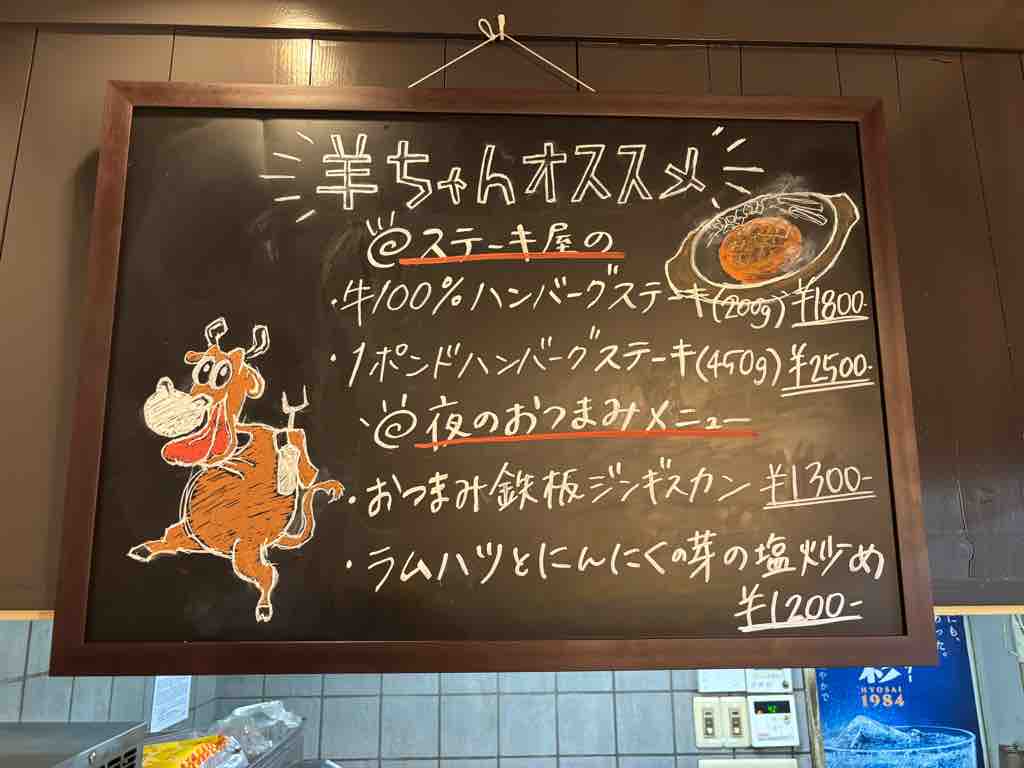 羊ちゃんオススメ
@ステーキ屋の
・牛100%ハンバーグステーキ(200g) ¥1800-
・1ポンドハンバーグステーキ(450g) ¥2500-
@夜のおつまみメニュー
・おつまみ鉄板ジンギスカン ¥1300-
・ラムハツとにんにくの芽の塩炒め
¥1200-
HYOSAI
1984